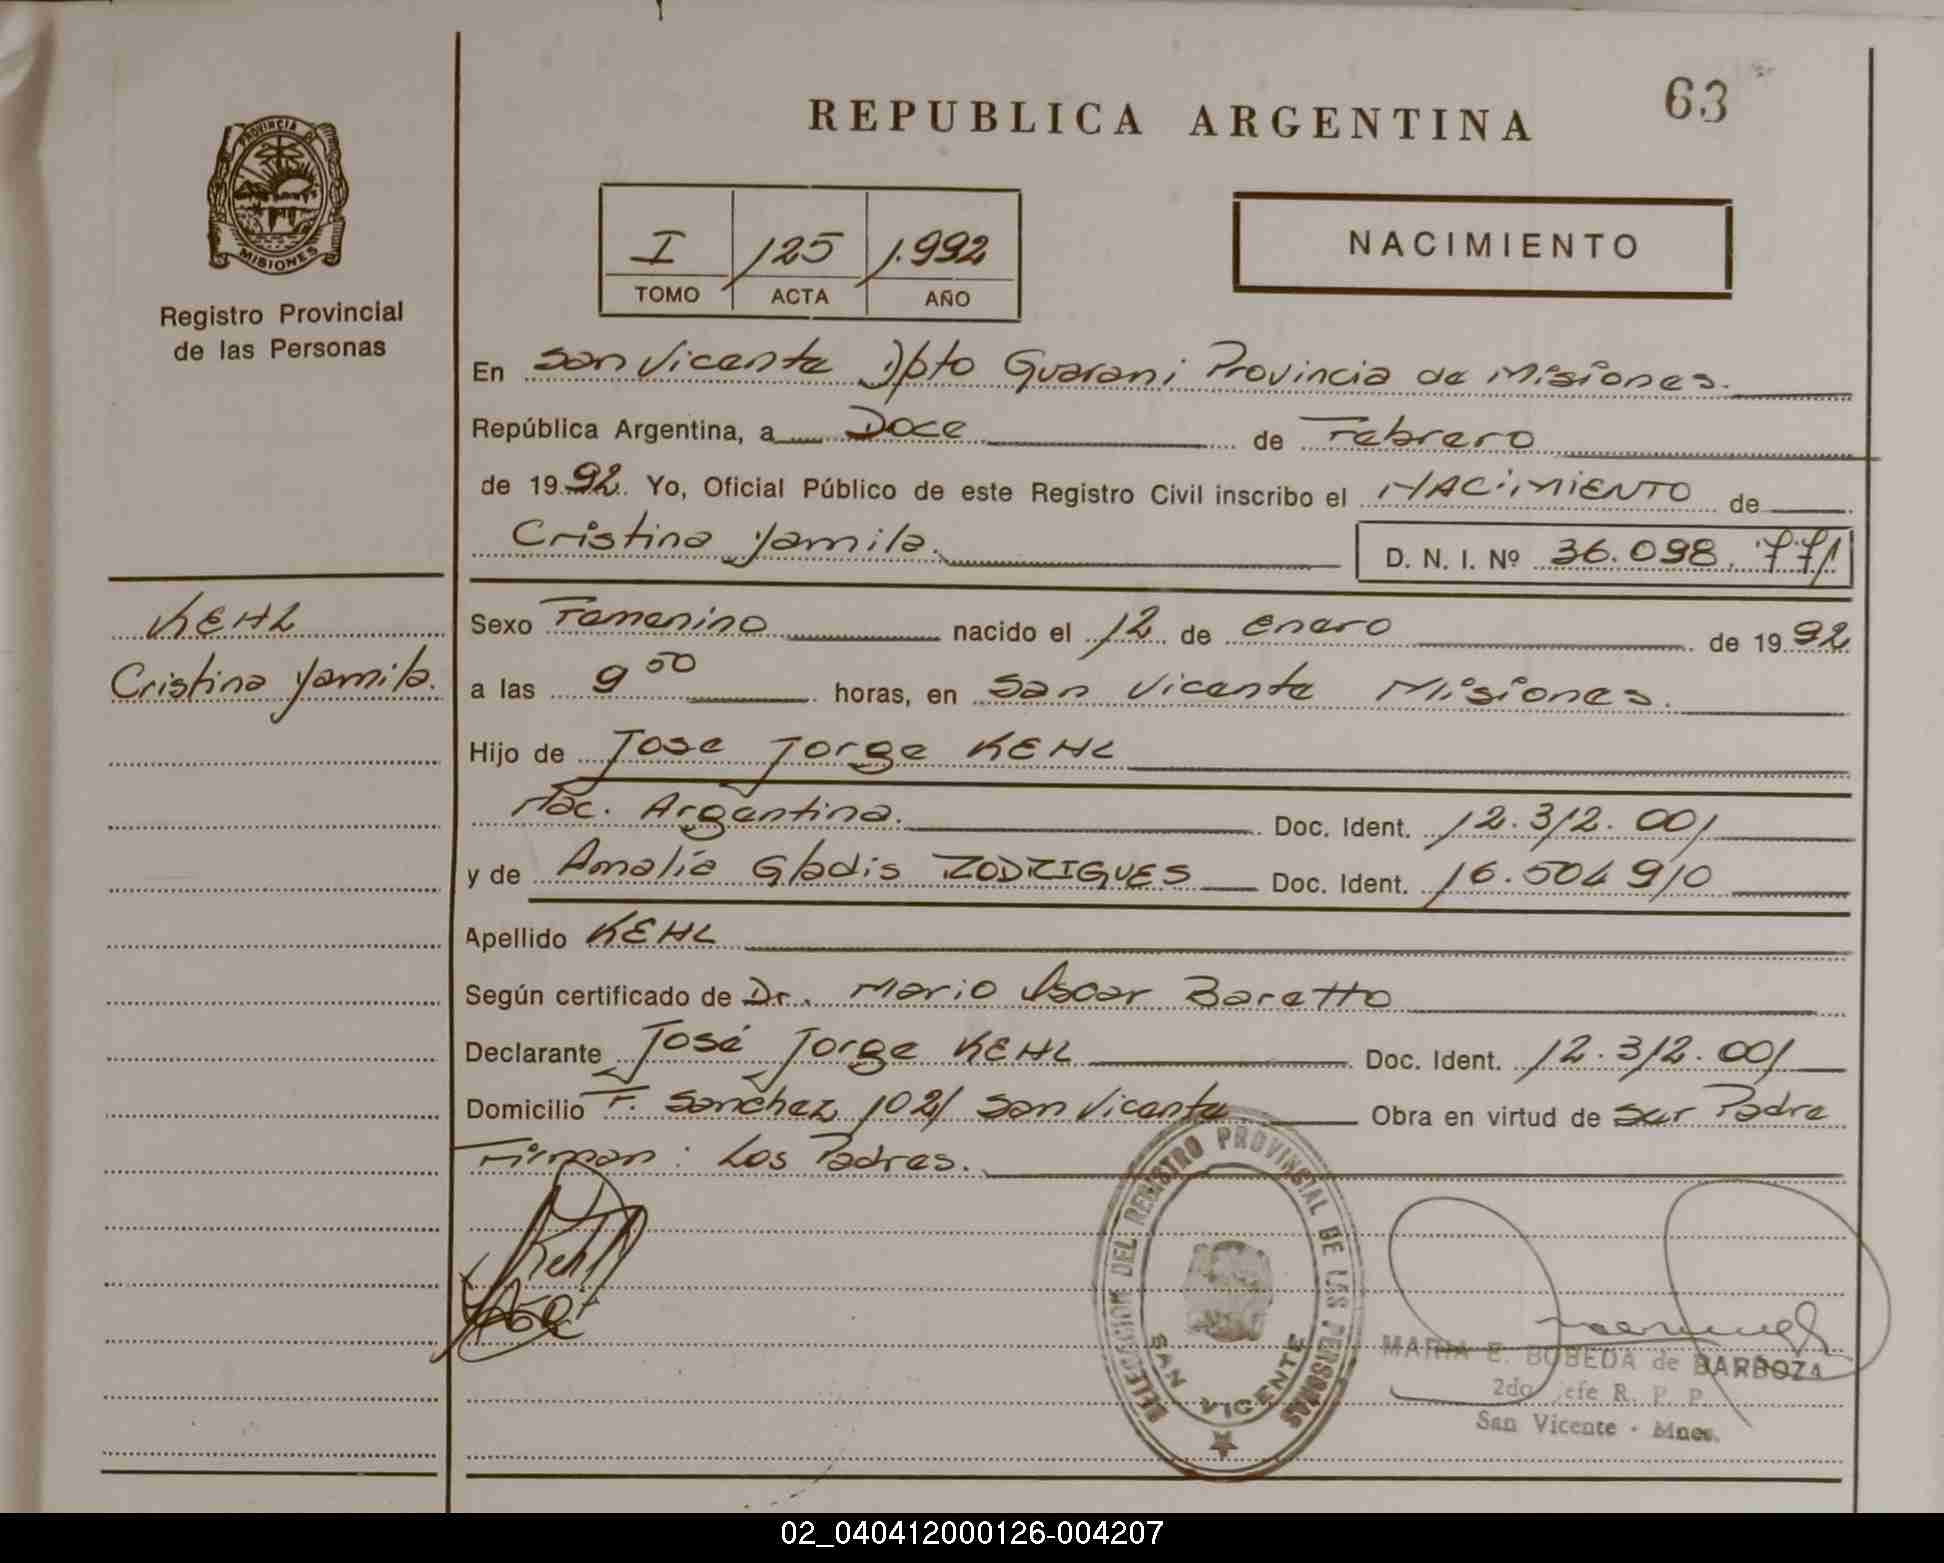 REPUBLICA ARGENTINA
63
PROVINCIA DE
MISIONES
Registro Provincial
de las Personas
I 125 1.992
TOMO ACTA AÑO
NACIMIENTO
En San Vicente Dpto Guarani Provincia de Misiones.
República Argentina, a Doce de Febrero
de 1992. Yo, Oficial Público de este Registro Civil inscribo el NACIMIENTO de
Cristina Yamila. D. N. I. Nº 36.098.771
KEHL
Cristina Yamila.
Sexo Femenino nacido el 12 de enero de 1992
a las 9 50 horas, en San Vicente Misiones.
Hijo de Jose Jorge KEHL
Nac. Argentina. Doc. Ident. 12.312.001
y de Amalia Gladis RODRIGUES Doc. Ident. 16.504 910
Apellido KEHL
Según certificado de Dr. Mario Oscar Baretto
Declarante José Jorge KEHL Doc. Ident. 12.312.001
Domicilio F. Sanchez 1021 San Vicente Obra en virtud de Ser Padre
Firman: Los Padres.
Kehl
José
DELEGACION DEL REGISTRO PROVINCIAL DE LAS PERSONAS
SAN VICENTE
MARIA E. BOBEDA de BARBOZA
2do Jefe R. P. P.
San Vicente - Mnes.
02_040412000126-004207